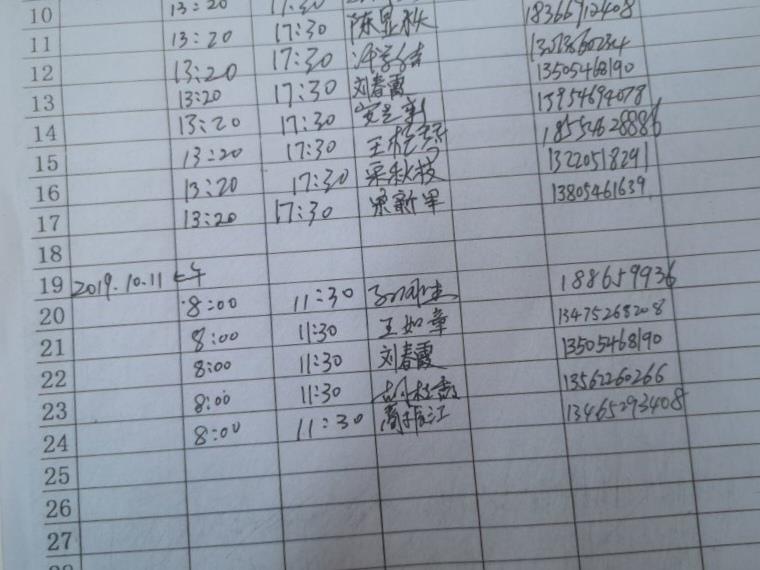 10 13:20 17:30 18366912408
11 13:20 17:30 陈显秋
12 13:20 17:30 13505468190
13 13:20 17:30 刘春霞 13954694078
14 13:20 17:30 18554628886
15 13:20 17:30 13220518291
16 13:20 17:30 宋秋枝 13805461639
17 13:20 17:30 宋新军
18
19 2019.10.11 上午 188659936
20 8:00 11:30 13475268208
21 8:00 11:30 王如章 13505468190
22 8:00 11:30 刘春霞 13562260266
23 8:00 11:30 13465293408
24 8:00 11:30
25
26
27